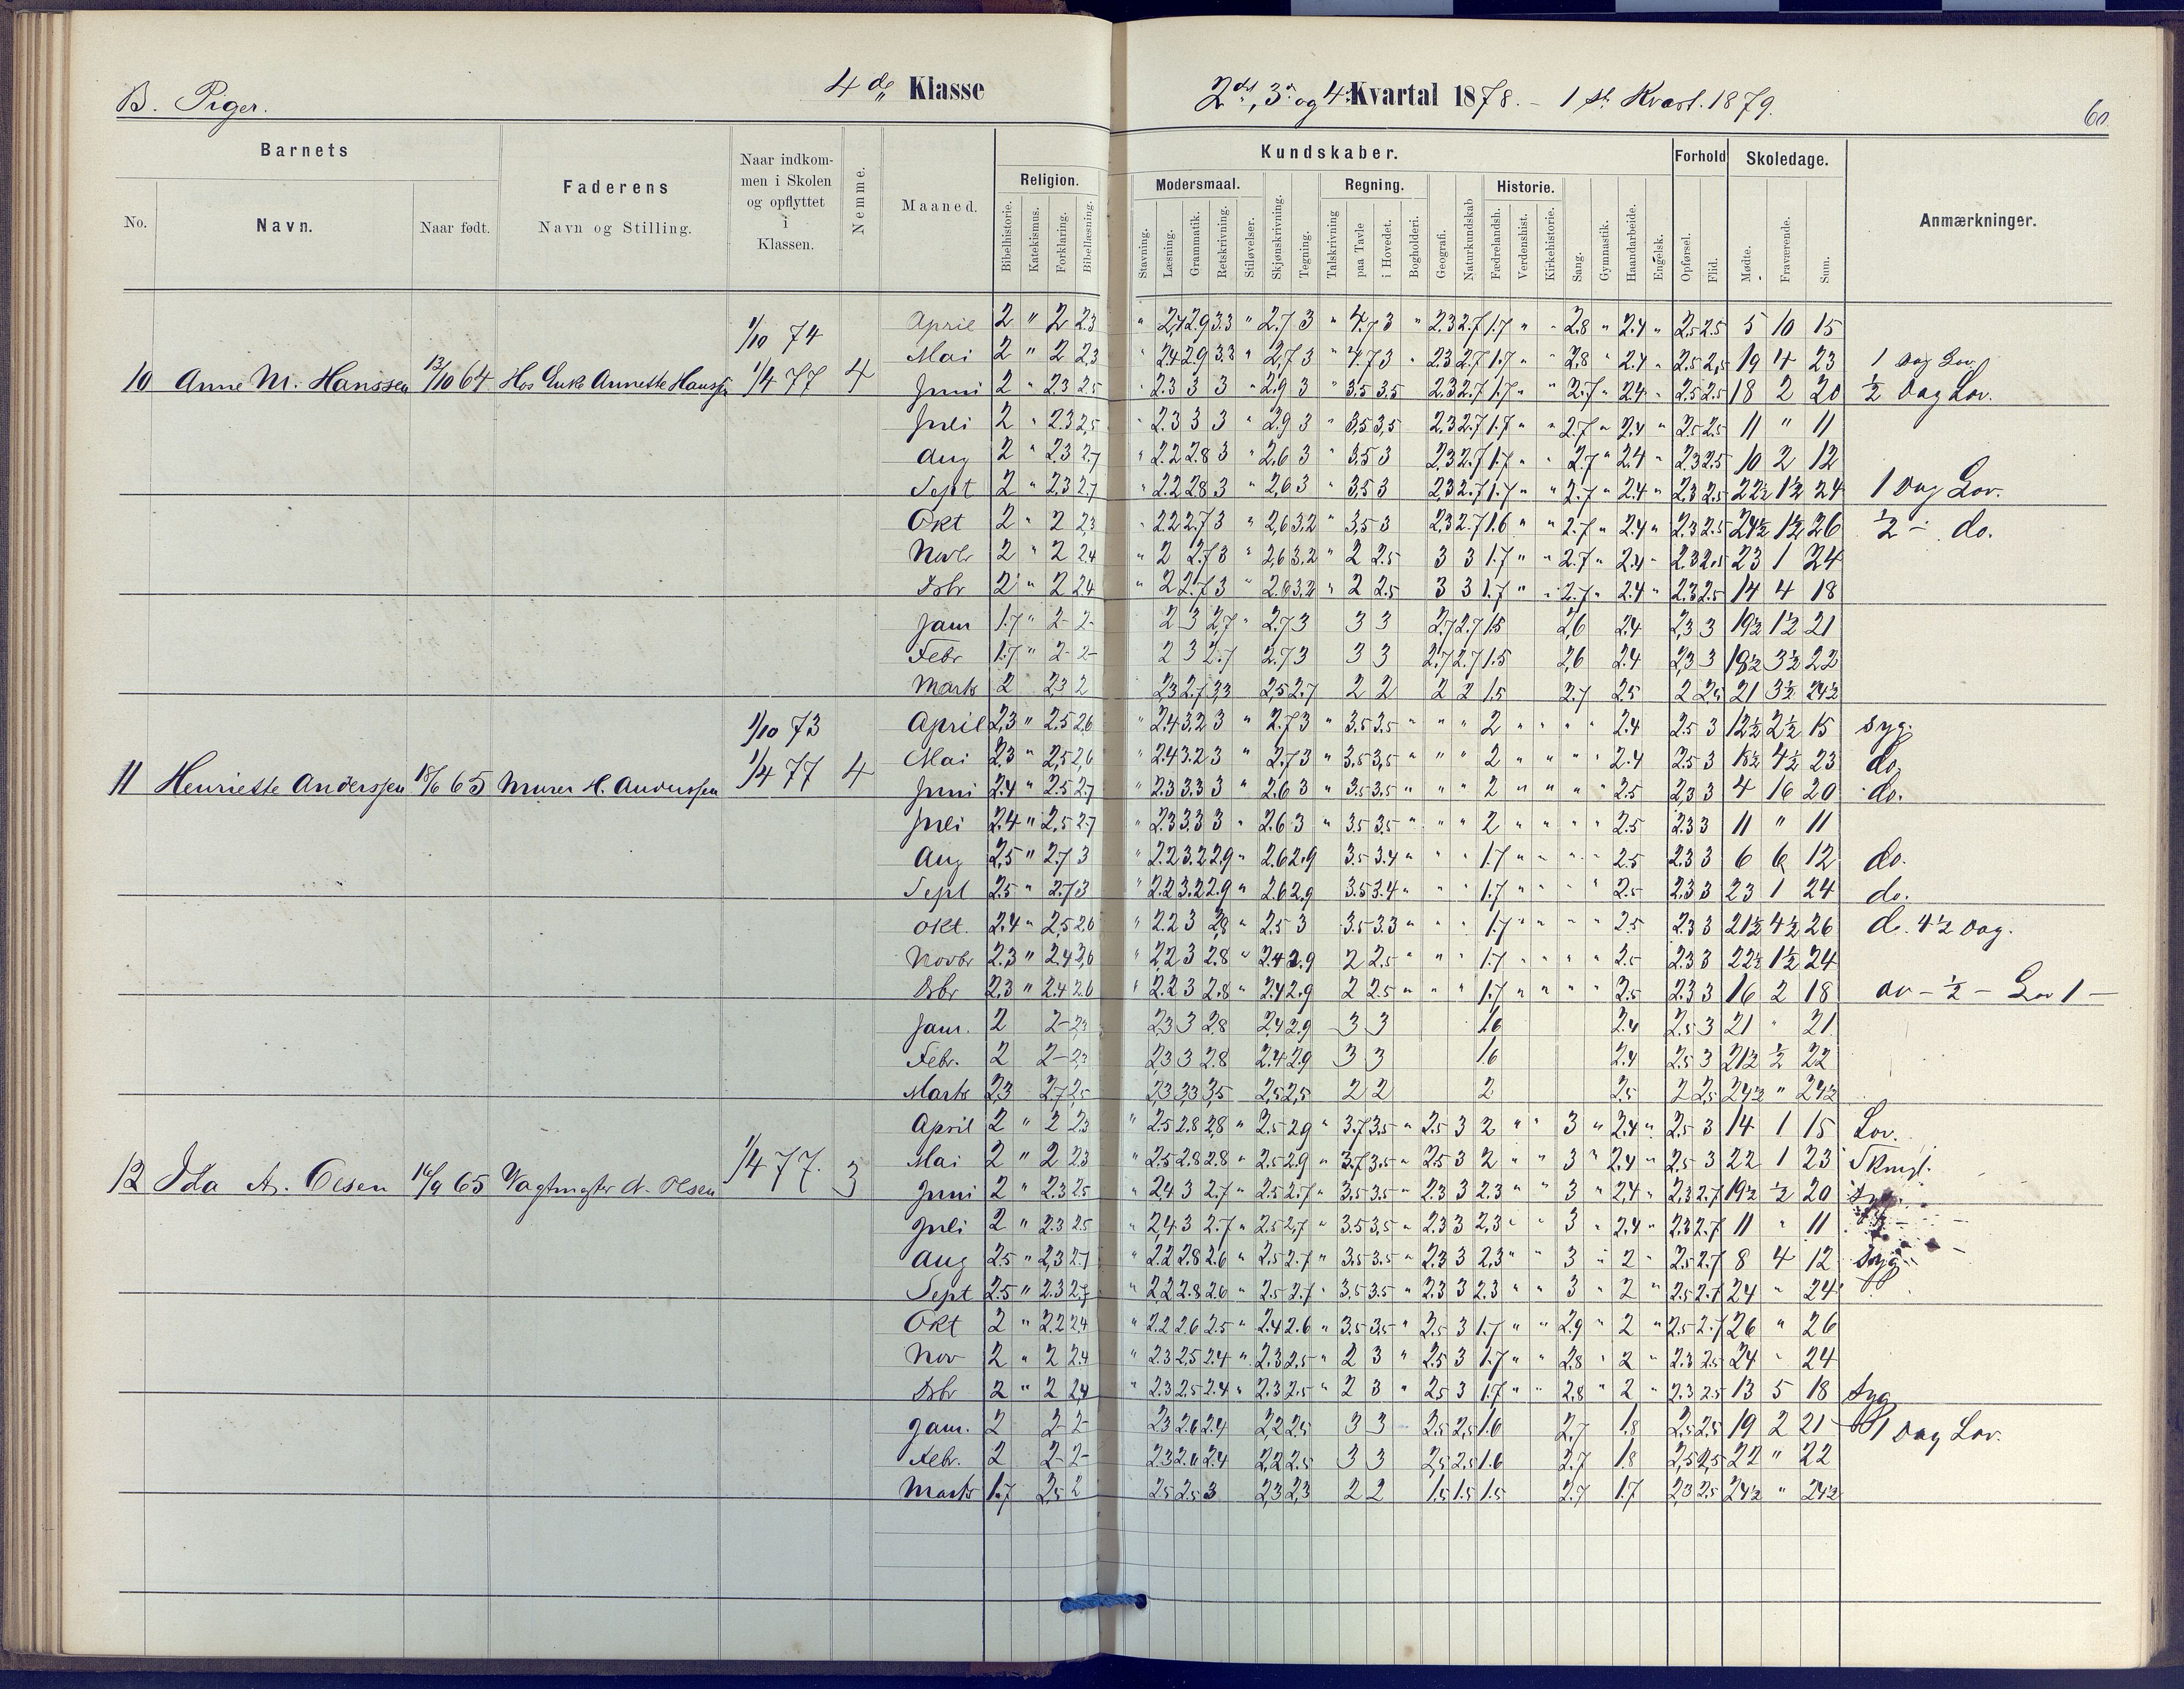 B. Piger.
4de Klasse
2det, 3die og 4de Kvartal 1878. – 1ste Kvart. 1879.
60
Barnets
Faderens
Navn og Stilling.
Naar indkommen i Skolen og opflyttet i Klassen.
Nemme.
Maaned.
Religion.
Kundskaber.
Forhold
Skoledage.
Anmærkninger.
No.
Navn.
Naar født.
Bibelhistorie.
Katekismus.
Forklaring.
Bibellæsning.
Modersmaal.
Regning.
Historie.
Stavning.
Læsning.
Grammatik.
Retskrivning.
Stiløvelser.
Skjønskrivning.
Tegning.
Talskrivning
paa Tavle
i Hovedet.
Bogholderi.
Geografi.
Naturkundskab
Fædrelandsh.
Verdenshist.
Kirkehistorie.
Sang.
Gymnastik.
Haandarbeide.
Engelsk.
Opførsel.
Flid.
Mødte.
Fraværende.
Sum.
10 Anne M. Hanssen 13/10 64 Hos Enke Annette Hanssen 1/10 74 1/4 77 4
April 2 " 2 2.3 " 2.4 2.9 3.3 " 2.7 3 " 4.7 3 " 2.3 2.7 1.7 " " 2.8 " 2.4 " 2.5 2.5 5 10 15
Mai 2 " 2 2.3 " 2.4 2.9 3.3 " 2.7 3 " 4.7 3 " 2.3 2.7 1.7 " " 2.8 " 2.4 " 2.5 2.5 19 4 23 1 Dag Lov.
Juni 2 " 2.3 2.5 " 2.3 3 3 " 2.9 3 " 3.5 3.5 2.3 2.7 1.7 " " 2.7 " 2.4 " 2.5 2.5 18 2 20 ½ Dag Lov.
Juli 2 " 2.3 2.5 " 2.3 3 3 " 2.9 3 " 3.5 3.5 2.3 2.7 1.7 " " 2.7 " 2.4 " 2.5 2.5 11 " 11
Aug 2 " 2.3 2.7 " 2.2 2.8 3 " 2.6 3 " 3.5 3 2.3 2.7 1.7 " " 2.7 " 2.4 " 2.3 2.5 10 2 12
Sept 2 " 2.3 2.7 " 2.2 2.8 3 " 2.6 3 " 3.5 3 2.3 2.7 1.7 " " 2.7 " 2.4 " 2.3 2.5 22½ 1½ 24 1 Dag Lov.
Okt 2 " 2 2.3 " 2.2 2.7 3 " 2.6 3.2 " 3.5 3 2.3 2.7 1.6 " " 2.7 " 2.4 " 2.3 2.5 24½ 1½ 26 ½ – do.
Novbr 2 " 2 2.4 " 2 2.7 3 " 2.6 3.2 " 2 2.5 3 3 1.7 " " 2.7 " 2.4 " 2.3 2.5 23 1 24
Dsbr 2 " 2 2.4 " 2 2.7 3 " 2.6 3.2 " 2 2.5 3 3 1.7 " " 2.7 " 2.4 " 2.3 2.5 14 4 18
Jam 1.7 " 2- 2- 2 3 2.7 " 2.7 3 3 3 2.7 2.7 1.5 2.6 2.4 2.3 3 19½ 1½ 21
Febr 1.7 " 2- 2- 2 3 2.7 2.7 3 3 3 2.7 2.7 1.5 2.6 2.4 2.3 3 18½ 3½ 22
Marts 2 2.3 2 2.3 2.7 3.3 2.5 2.7 2 2 2 2 1.5 2.7 2.5 2 2.5 21 3½ 24½
11 Henriette Anderssen 18/6 65 Murer H. Anderssen 1/10 73 1/4 77 4
April 2.3 " 2.5 2.6 " 2.4 3.2 3 " 2.7 3 " 3.5 3.5 " " " 2 " " " " 2.4 2.5 3 12½ 2½ 15 Syg.
Mai 2.3 " 2.5 2.6 " 2.4 3.2 3 " 2.7 3 " 3.5 3.5 " " " 2 " " " " 2.4 2.5 3 18½ 4½ 23 do.
Juni 2.4 " 2.5 2.7 " 2.3 3.3 3 " 2.6 3 " 3.5 3.5 " " " 2 " " " " 2.5 2.3 3 4 16 20 do.
Juli 2.4 " 2.5 2.7 " 2.3 3.3 3 " 2.6 3 " 3.5 3.5 " " " 2 " " " " 2.5 2.3 3 11 " 11
Aug 2.5 " 2.7 3 " 2.2 3.2 2.9 " 2.6 2.9 3.5 3.4 " " " 1.7 " " " " 2.5 2.3 3 6 6 12 do.
Sept 2.5 " 2.7 3 " 2.2 3.2 2.9 " 2.6 2.9 3.5 3.4 " " " 1.7 " " " " 2.5 2.3 3 23 1 24 do.
Okt. 2.4 " 2.5 2.6 " 2.2 3 2.8 " 2.5 3 3.5 3.3 " " " 1.7 " " " " 2.5 2.3 3 21½ 4½ 26 do. 4½ Dag.
Novbr 2.3 " 2.4 2.6 " 2.2 3 2.8 " 2.4 2.9 2 2.5 " " " 1.7 " " " " 2.5 2.3 3 22½ 1½ 24
Dsbr 2.3 " 2.4 2.6 " 2.2 3 2.8 " 2.4 2.9 2 2.5 " " " 1.7 " " " " 2.5 2.3 3 16 2 18 do – ½ – Lov 1 –
Jam. 2 2- 2.3 2.3 3 2.8 2.4 2.9 3 3 1.6 2.4 2.5 3 21 " 21
Febr. 2 2- 2.3 2.3 3 2.8 2.4 2.9 3 3 1.6 2.4 2.5 3 21½ ½ 22
Marts 2.3 2.7 2.5 2.3 3.3 3.5 2.5 2.5 2 2 2 2.5 2 2.5 24½ " 24½
12 Ida A. Olsen 16/9 65 Vagtmester N. Olsen 1/4 77. 3
April 2 " 2 2.3 " 2.5 2.8 2.8 " 2.5 2.9 " 3.7 3.5 " 2.5 3 2 " " 3 " 2.4 " 2.5 3 14 1 15 Lov.
Mai 2 " 2 2.3 " 2.5 2.8 2.8 " 2.5 2.9 " 3.7 3.5 " 2.5 3 2 " " 3 " 2.4 " 2.5 3 22 1 23
Juni 2 " 2.3 2.5 " 2.4 3 2.7 " 2.5 2.7 " 3.5 3.5 " 2.3 3 2.3 " " 3 " 2.4 " 2.3 2.7 19½ ½ 20
Juli 2 " 2.3 2.5 " 2.4 3 2.7 " 2.5 2.7 " 3.5 3.5 " 2.3 3 2.3 " " 3 " 2.4 " 2.3 2.7 11 " 11
Aug 2.5 " 2.3 2.7 " 2.2 2.8 2.6 " 2.5 2.7 " 3.5 3.5 " 2.3 3 2.3 " " 3 " 2 " 2.5 2.7 8 4 12 Syg
Sept 2.5 " 2.3 2.7 " 2.2 2.8 2.6 " 2.5 2.7 " 3.5 3.5 " 2.3 3 2.3 " " 3 " 2 " 2.5 2.7 24 " 24
Okt 2 " 2.2 2.4 " 2.2 2.6 2.5 " 2.4 2.6 " 3.5 3.5 " 2.5 3 1.7 " " 2.9 " 2 " 2.5 2.7 26 " 26
Nov 2 " 2 2.4 " 2.3 2.5 2.4 " 2.3 2.5 " 2 3 " 2.5 3 1.7 " " 2.8 " 2 " 2.3 2.5 24 " 24
Dsbr 2 " 2 2.4 " 2.3 2.5 2.4 " 2.3 2.5 " 2 3 " 2.5 3 1.7 " " 2.8 " 2 " 2.3 2.5 13 5 18 Syg
Jam. 2 2 2- 2.3 2.6 2.4 2.2 2.5 3 3 2.5 2.5 1.6 2.7 1.8 2.5 2.5 19 2 21 1 Dag Lov.
Febr. 2 2- 2- 2.3 2.6 2.4 2.2 2.5 3 3 2.5 2.5 1.6 2.7 1.8 2.5 2.5 22 " 22
Marts 1.7 2.5 2 2.5 2.5 3 2.3 2.3 2 2 1.5 1.5 1.5 2.7 1.7 2.3 2.5 24½ " 24½